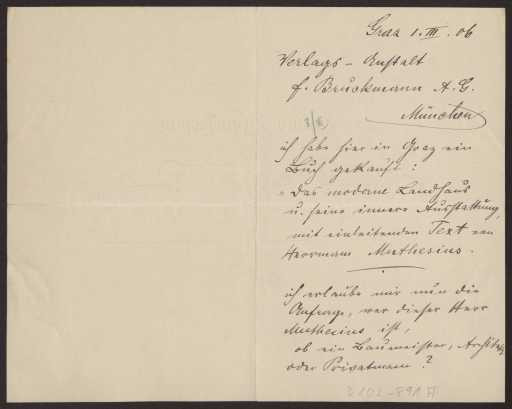 Graz 1. III. 06
Verlags-Anstalt
F. Bruckmann A. G.
München
ich habe hier in Graz ein
Buch gekauft:
"Das moderne Landhaus
u. seine innere Ausstattung,
mit einleitenden Text von
Herrmann Muthesius.
ich erlaube mir nun die
Anfrage, wer dieser Herr
Muthesius ist,
ob ein Baumeister, Architekt
oder Privatmann?